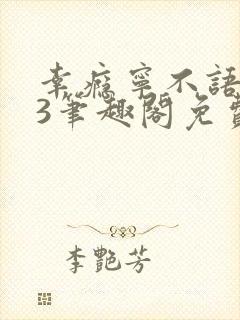 幸瘾寧不語
3筆趣閣免費
李艷芳